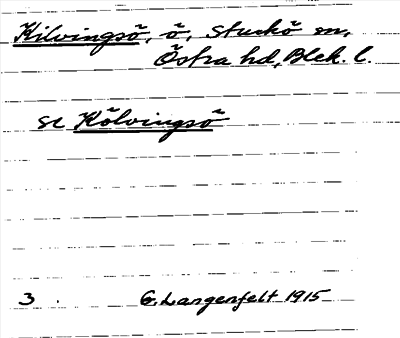 Kilvingsö, ö, Sturkö sn,
Östra hd, Blek. l.
se Kölvingsö
3. G. Langenfelt 1915